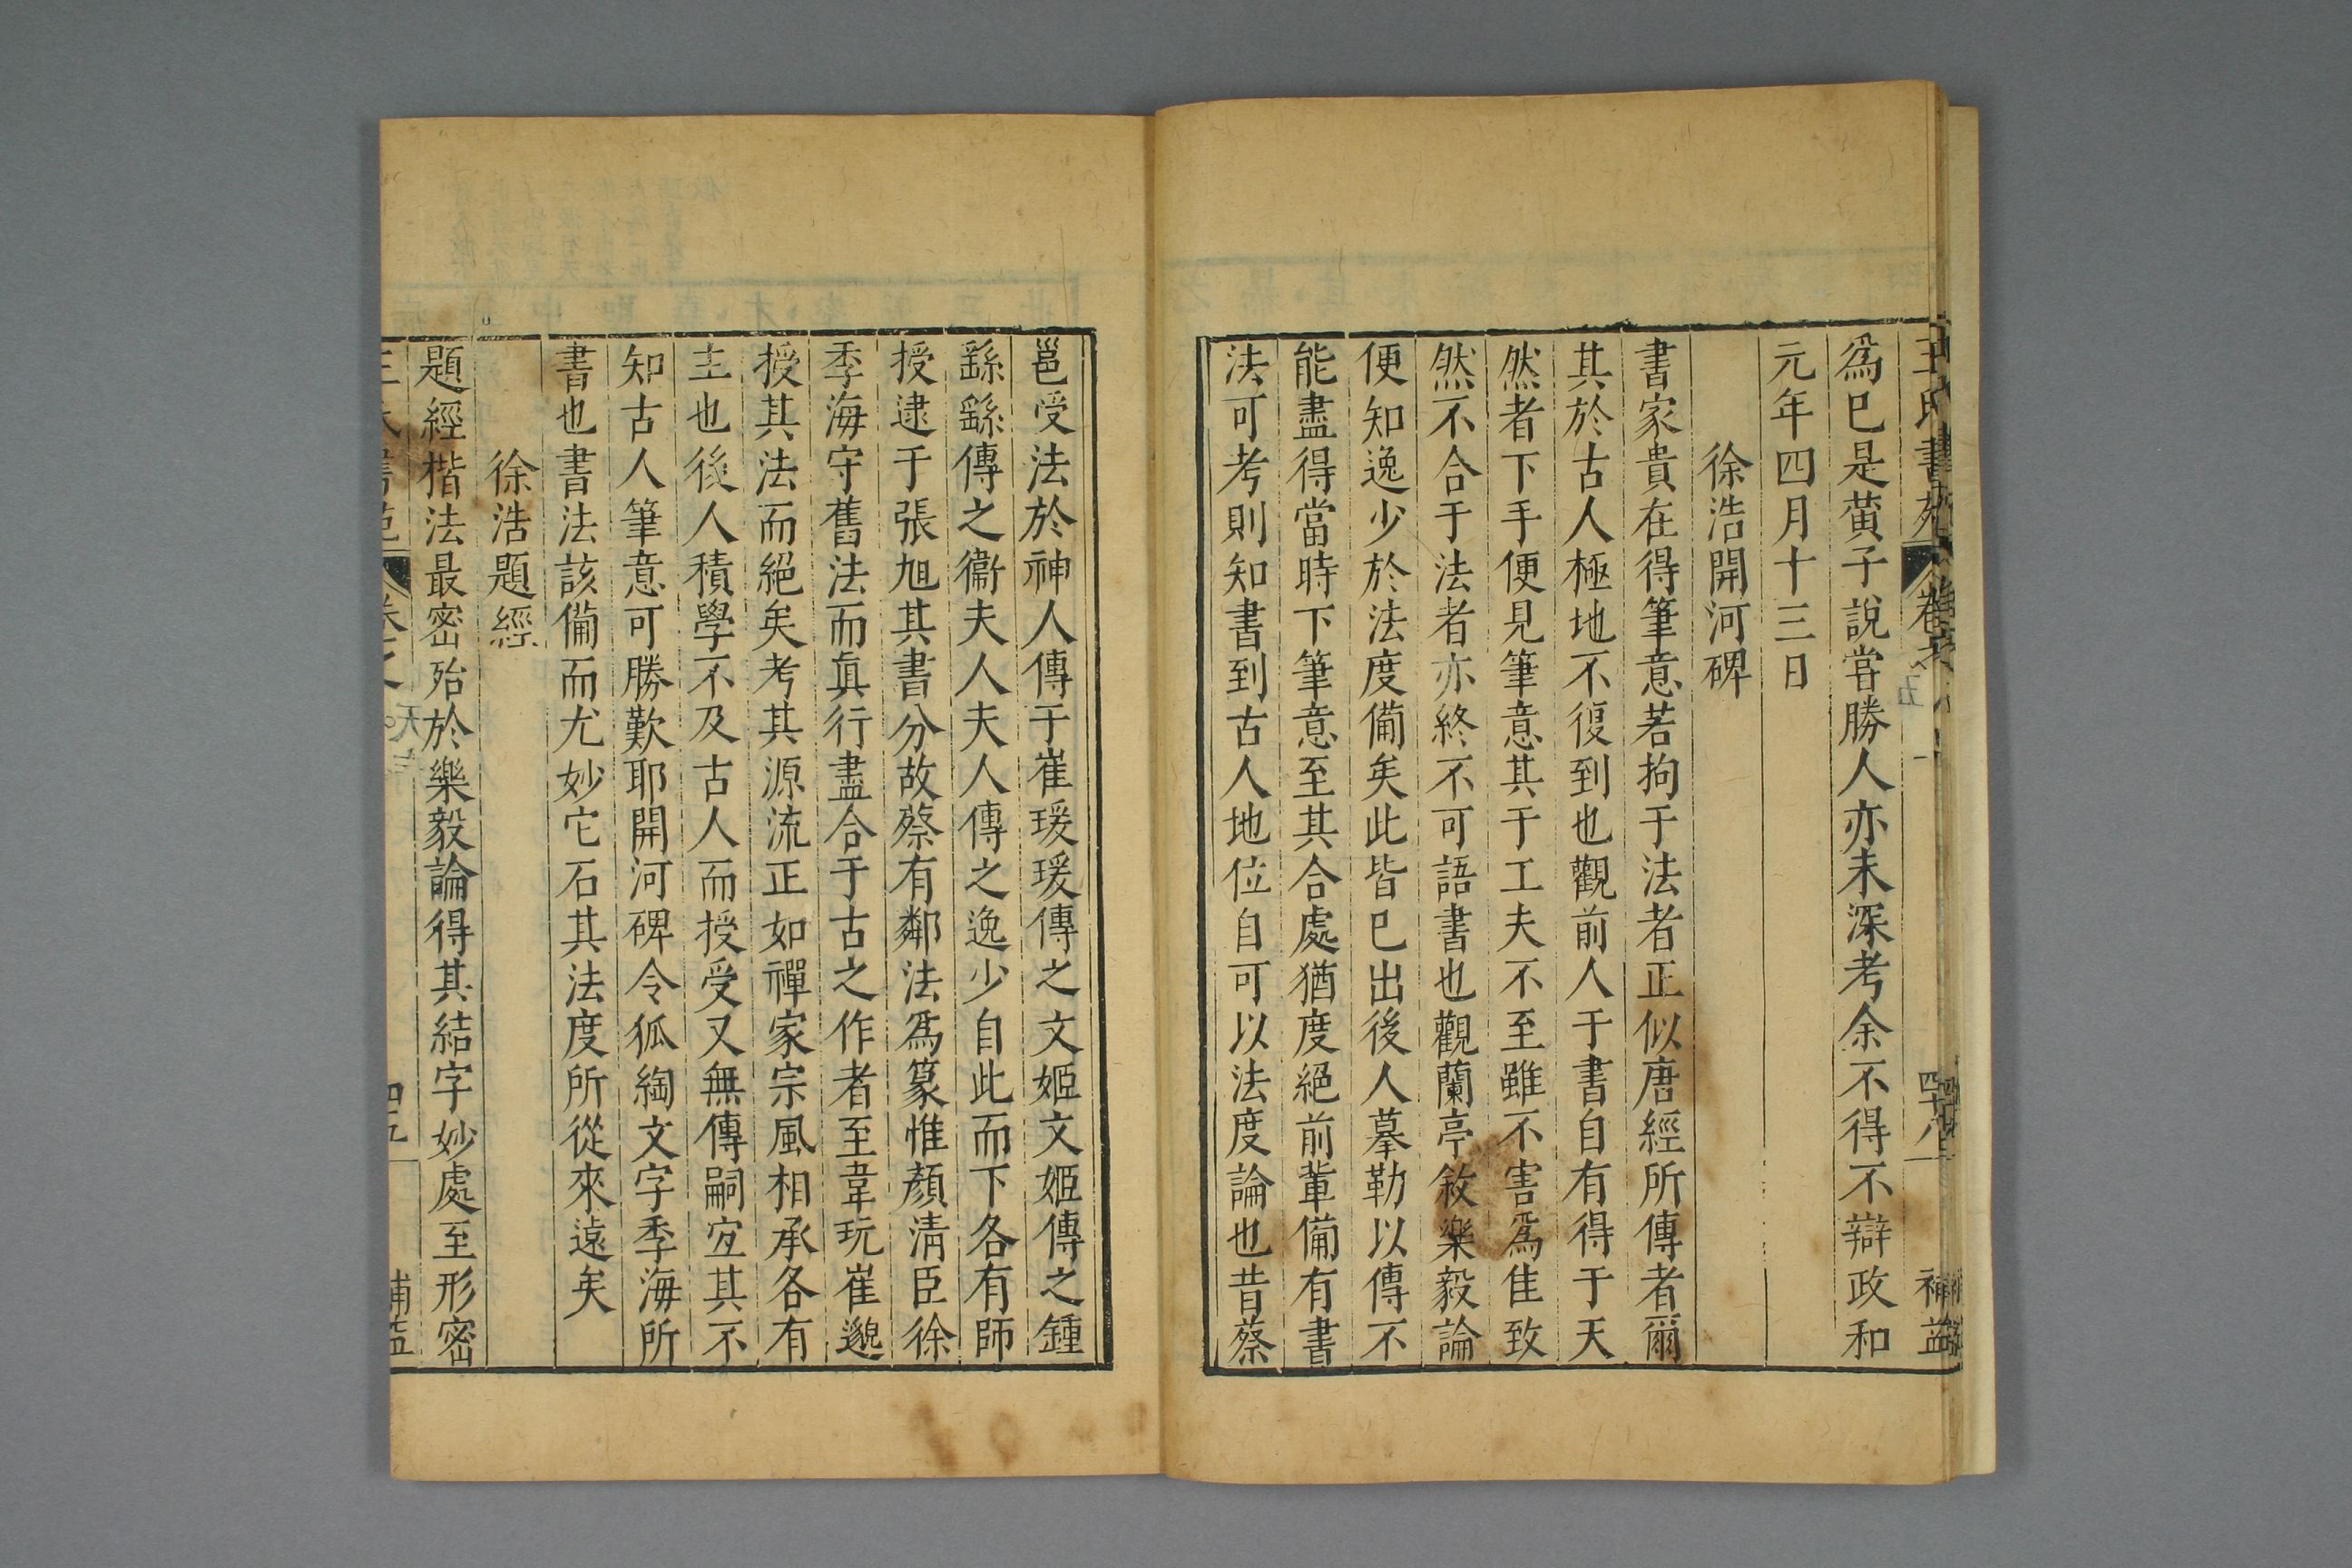 王氏書苑
爲已是黄子說嘗勝人亦未深考余不得不辯政和
元年四月十三日
徐浩開河碑
書家貴在得筆意若拘于法者正似唐經所傳者爾
其於古人極地不復到也觀前人于書自有得于天
然者下手便見筆意其于工夫不至雖不害爲隹致
然不合于法者亦終不可語書也觀蘭亭敘樂毅論
便知逸少於法度備矣此皆已出後人摹勒以傳不
能盡得當時下筆意至其合處猶度絕前軰備有書
法可考則知書到古人地位自可以法度論也昔蔡
邕受法於神人傳于崔瑗瑗傳之文姬文姬傳之鍾
繇繇傳之衞夫人夫人傳之逸少自此而下各有師
授逮于張旭其書分故蔡有鄰法爲篆惟顏淸臣徐
季海守舊法而眞行盡合于古之作者至韋玩崔邈
授其法而絕矣考其源流正如禪家宗風相承各有
主也後人積學不及古人而授受又無傳嗣宐其不
知古人筆意可勝歎耶開河碑令狐綯文字季海所
書也書法該備而尤妙它石其法度所從來遠矣
徐浩題經
題經楷法最密殆於樂毅論得其結字妙處至形密